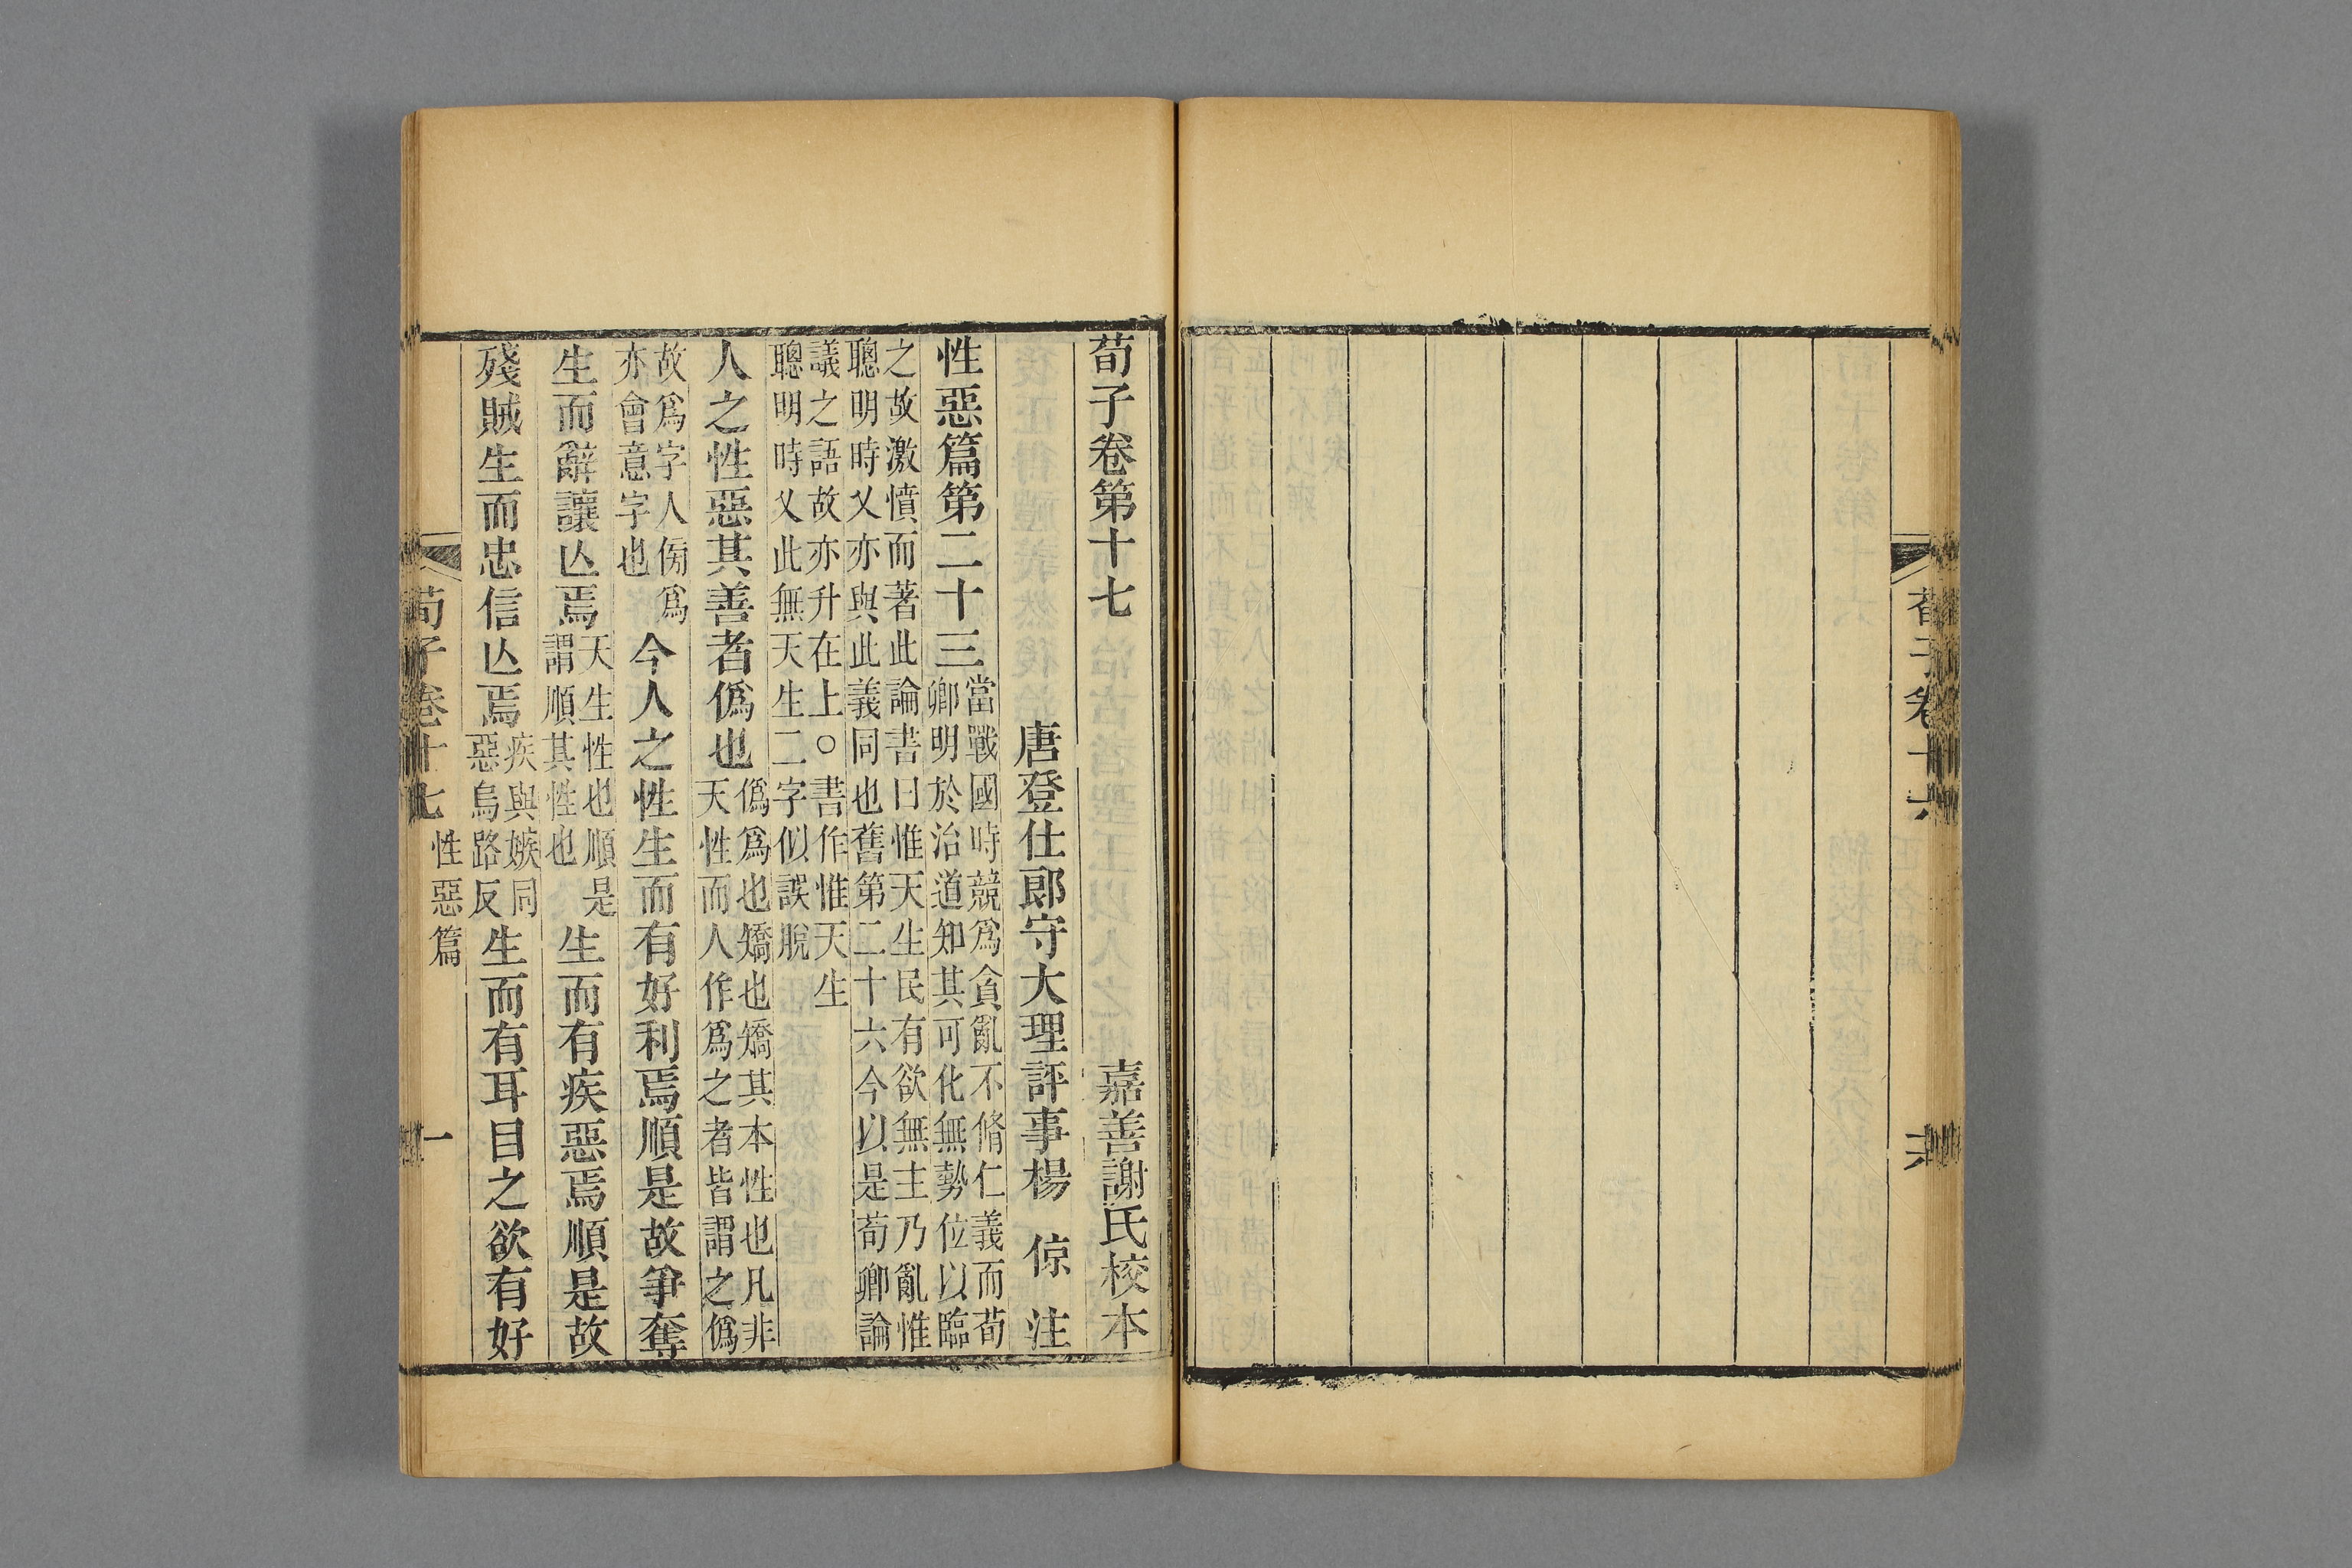 荀子卷十六
荀子卷第十七
嘉善謝氏校本
唐登仕郎守大理評事楊 倞 注
性惡篇第二十三
當戰國時競為貪亂不脩仁義而荀
卿明於治道知其可化無勢位以臨
之故激憤而著此論書曰惟天生民有欲無主乃亂惟
聰明時乂亦與此義同也舊第二十六今以是荀卿論
議之語故亦升在上○書作惟天生
聰明時乂此無天生二字似誤脫
人之性惡其善者僞也
僞爲也矯也矯其本性也凡非
天性而人作爲之者皆謂之僞
故爲字人傍爲
亦會意字也
今人之性生而有好利焉順是故爭奪
生而辭讓亾焉
天生性也順是
謂順其性也
生而有疾惡焉順是故
殘賊生而忠信亾焉
疾與嫉同
惡烏路反
生而有耳目之欲有好
荀子卷十七
性惡篇
一